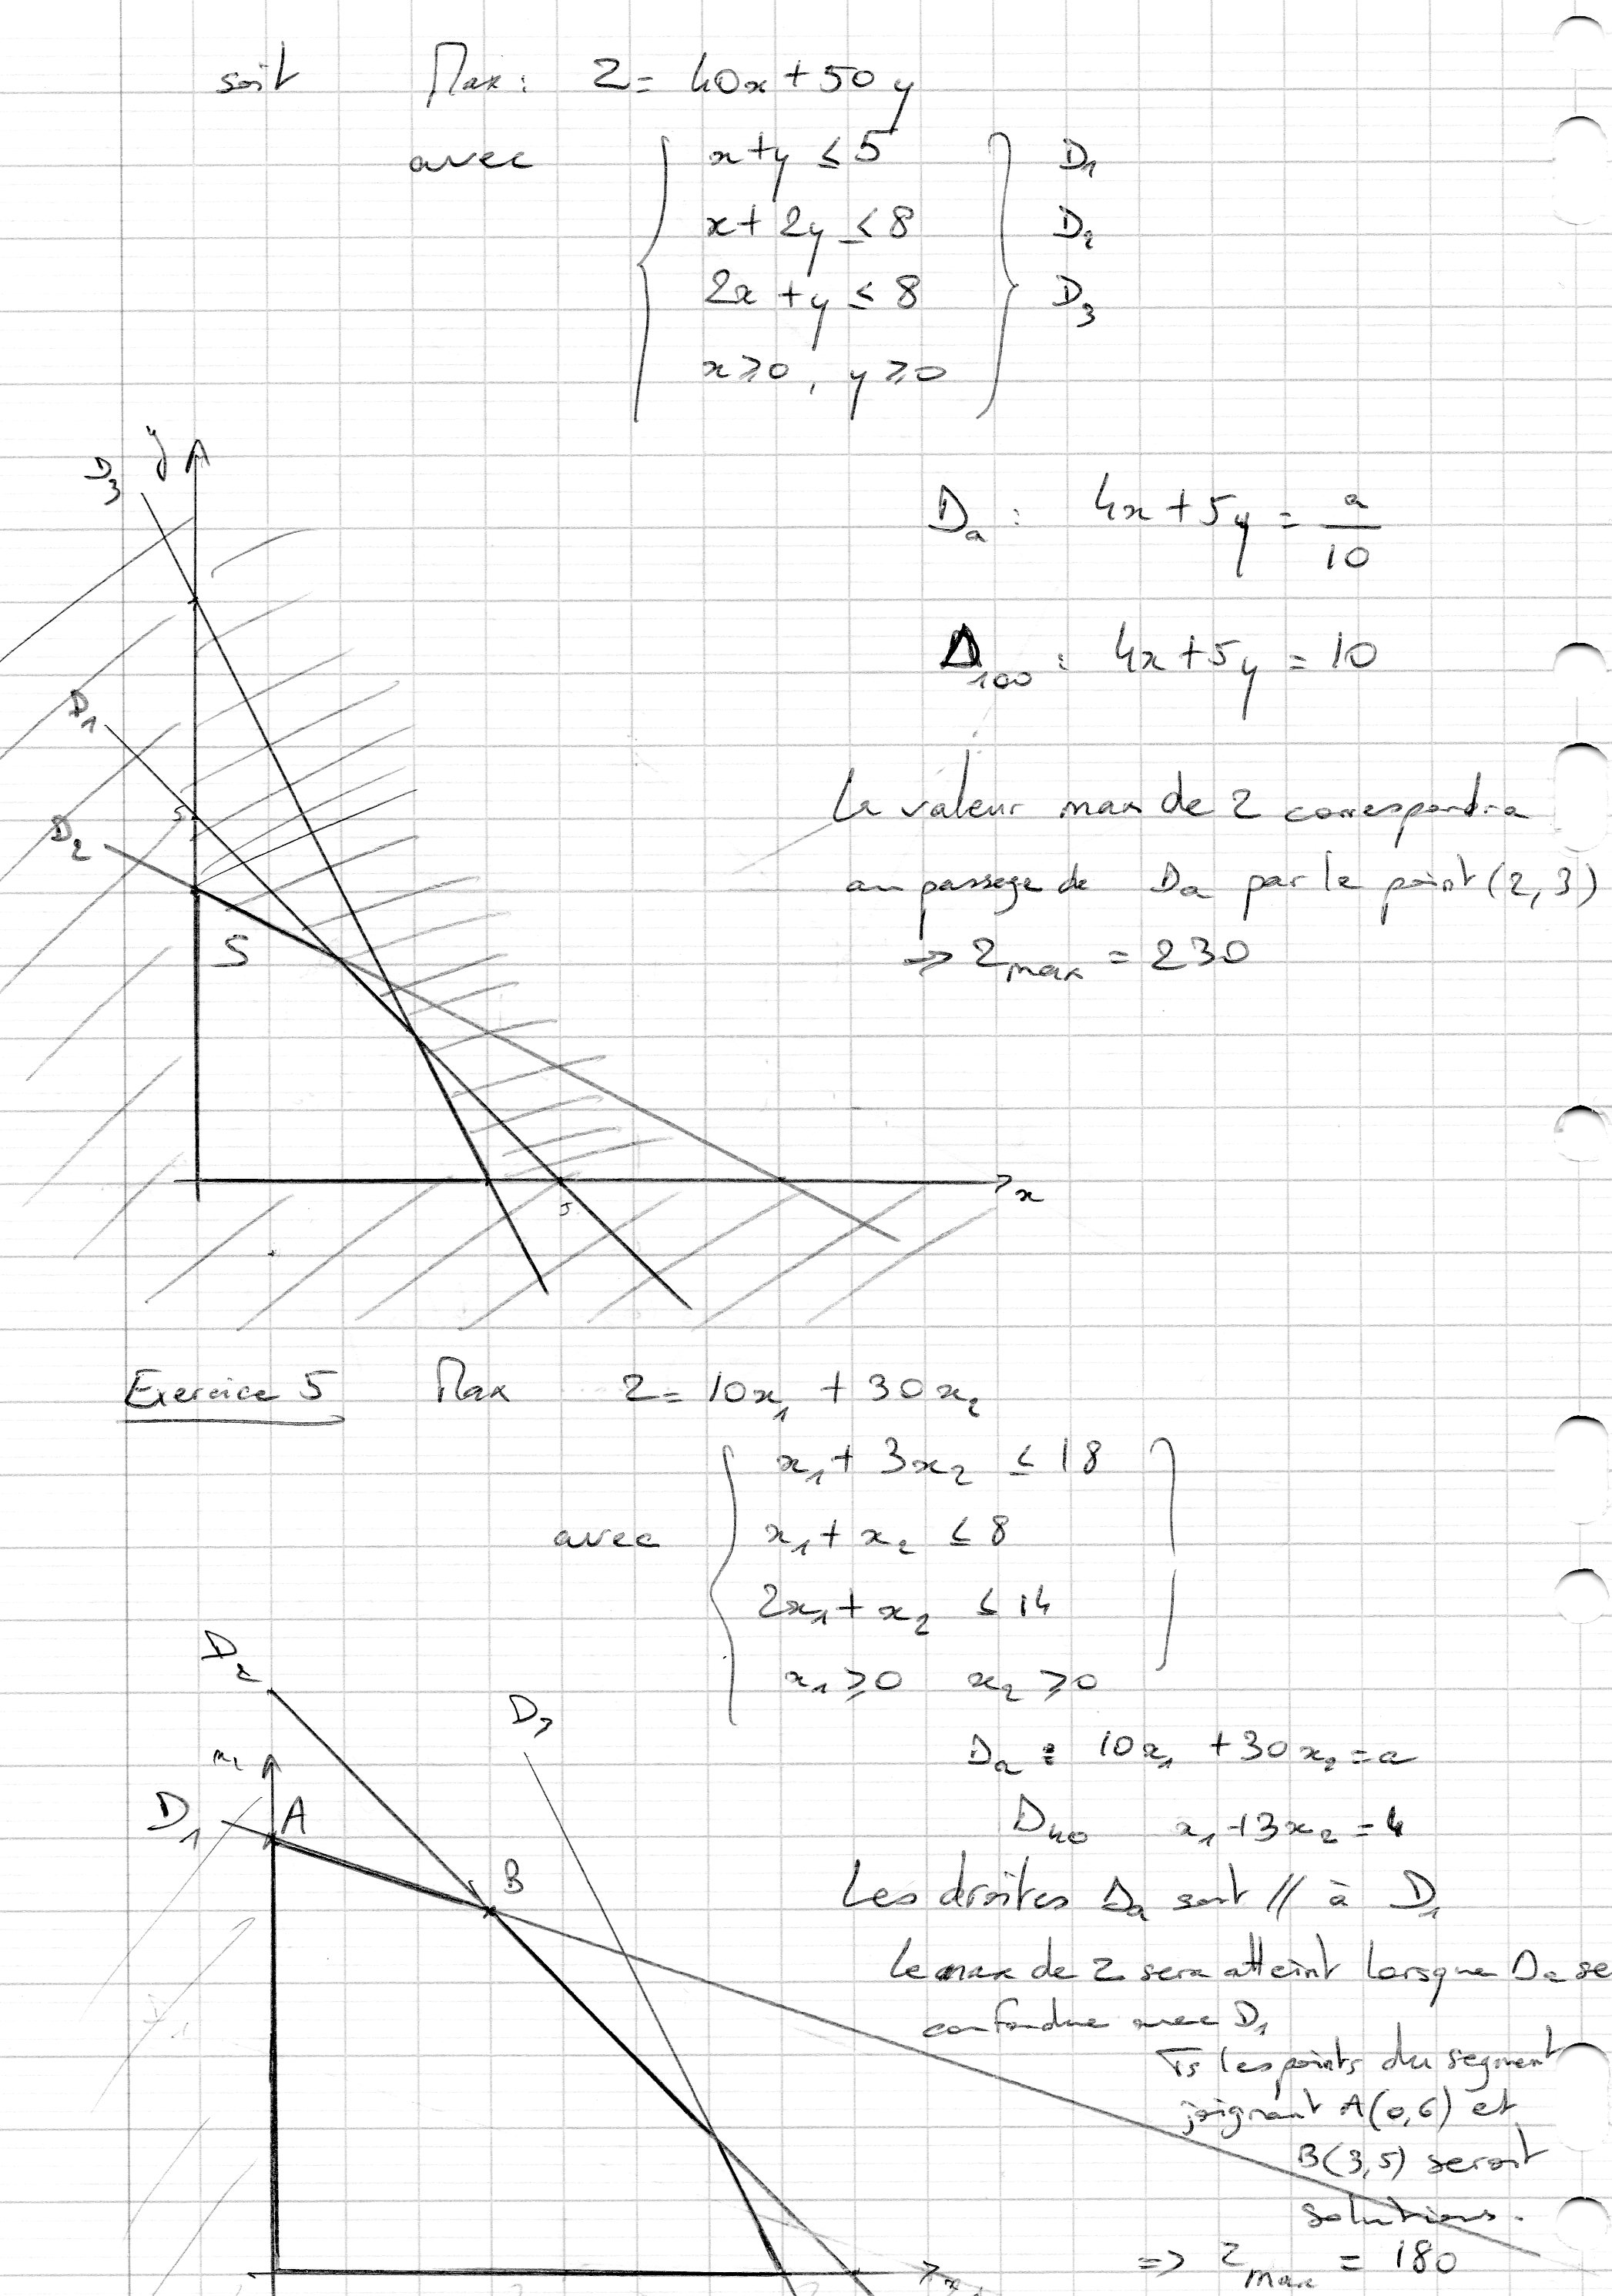 soit Max: Z = 40x + 50y
avec x+y ≤ 5 D1
x + 2y ≤ 8 D2
2x + y ≤ 8 D3
x ≥ 0, y ≥ 0
D3 y
Da : 4x + 5y = a/10
Δ100 : 4x + 5y = 10
D1
5
D2
La valeur max de Z correspondra
au passage de Da par le point (2, 3)
S
⇒ Zmax = 230
x
5
Exercice 5 Max Z = 10x1 + 30x2
x1 + 3x2 ≤ 18
avec x1 + x2 ≤ 8
2x1 + x2 ≤ 14
x1 ≥ 0 x2 ≥ 0
D2
D3
Da : 10x1 + 30x2 = a
D1 A
D40 x1 + 3x2 = 4
B
Les droites Da sont // à D1
Le max de Z sera atteint lorsque Da se
confondra avec D1
Ts les points du segment
joignant A(0,6) et
B(3,5) seront
solutions.
⇒ Zmax = 180